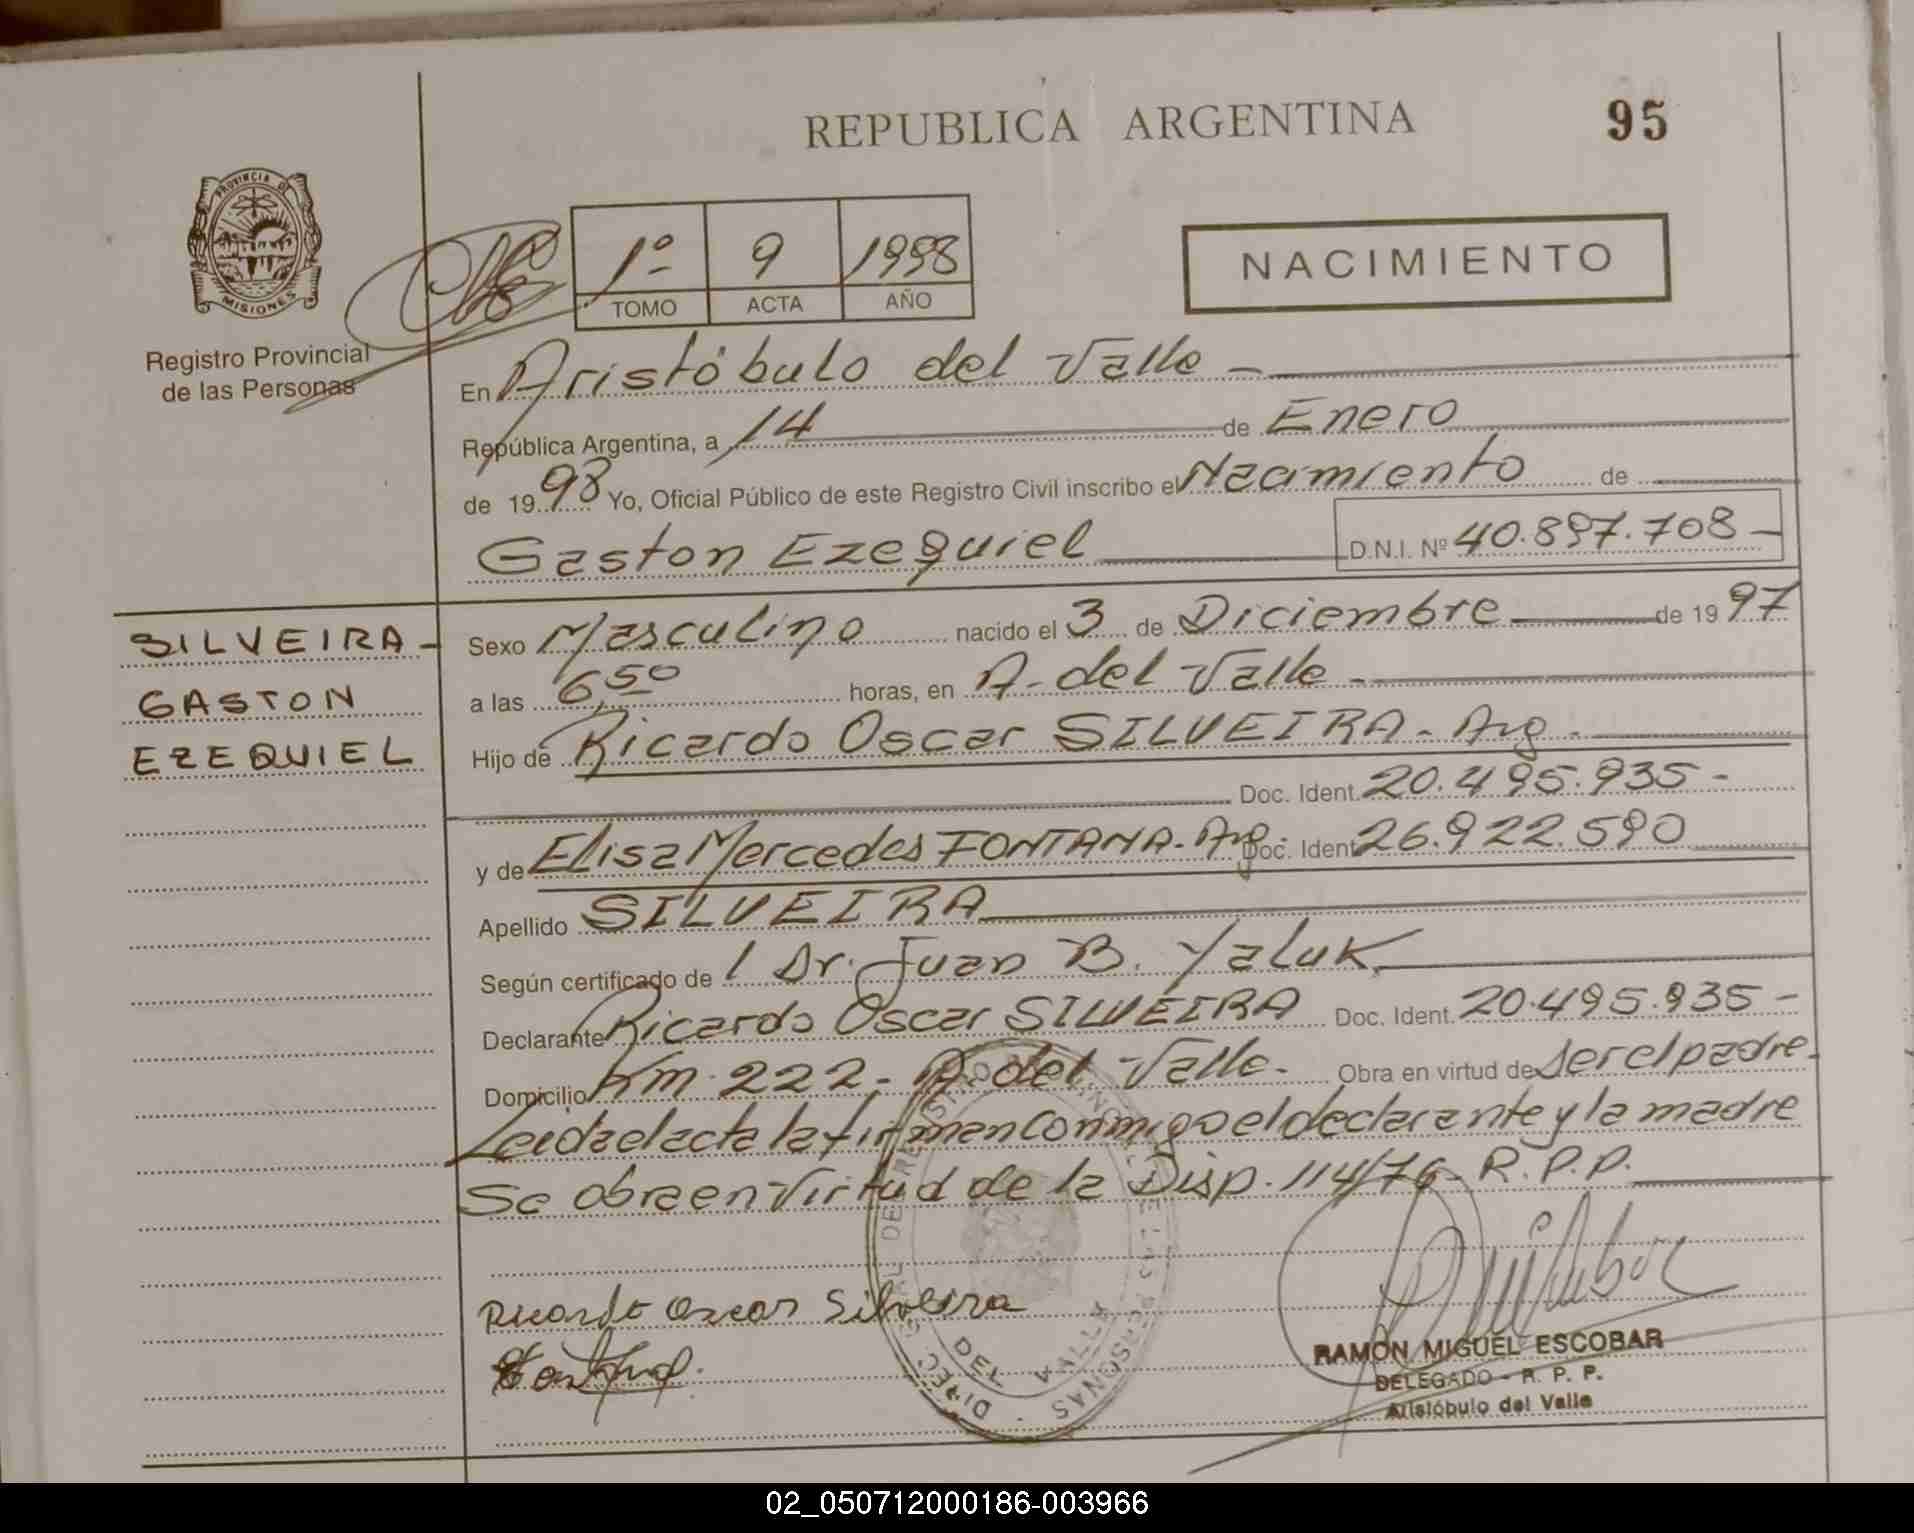 REPUBLICA ARGENTINA
95
PROVINCIA DE
MISIONES
Registro Provincial
de las Personas
1º 9 1998
TOMO ACTA AÑO
NACIMIENTO
En Aristóbulo del Valle
República Argentina, a 14 de Enero
de 1998 Yo, Oficial Público de este Registro Civil inscribo el Nacimiento de
Gaston Ezequiel D.N.I. Nº 40.897.708
SILVEIRA
GASTON
EZEQUIEL
Sexo Masculino nacido el 3 de Diciembre de 1997
a las 6,50 horas, en A. del Valle
Hijo de Ricardo Oscar SILVEIRA - Arg.
Doc. Ident. 20.495.935-
y de Elisa Mercedes FONTANA - Arg. Doc. Ident 26.922.590
Apellido SILVEIRA
Según certificado de l Dr. Juan B. Yaluk
Declarante Ricardo Oscar SILVEIRA Doc. Ident. 20.495.935-
Domicilio Km. 222 - A. del Valle. Obra en virtud de ser el padre.
Leida el acta la firman conmigo el declarante y la madre
Se obra en virtud de la Disp. 114/76 - R.P.P.
Ricardo Oscar Silveira
RAMÓN MIGUEL ESCOBAR
DELEGADO - R. P. P.
Aristóbulo del Valle
DEL VALLE
02_050712000186-003966